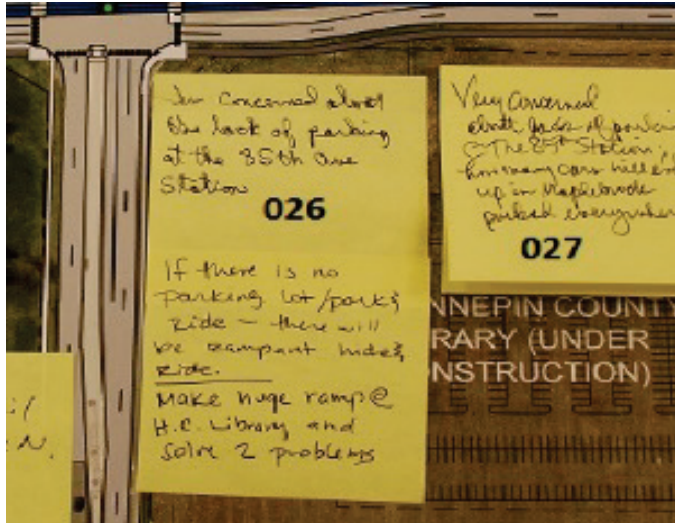 I'm concerned about
the lack of parking
at the 85th Ave
Station
026
If there is no
parking lot/park &
ride - there will
be rampant hide &
ride.
Make huge ramp @
H.C. Library and
solve 2 problems
Very Concerned
about lack of parkin
@ The 85th Station,
how many cars will e
up in Maplebrook
parked everywher
027
NNEPIN COUNTY
RARY (UNDER
NSTRUCTION)
N.